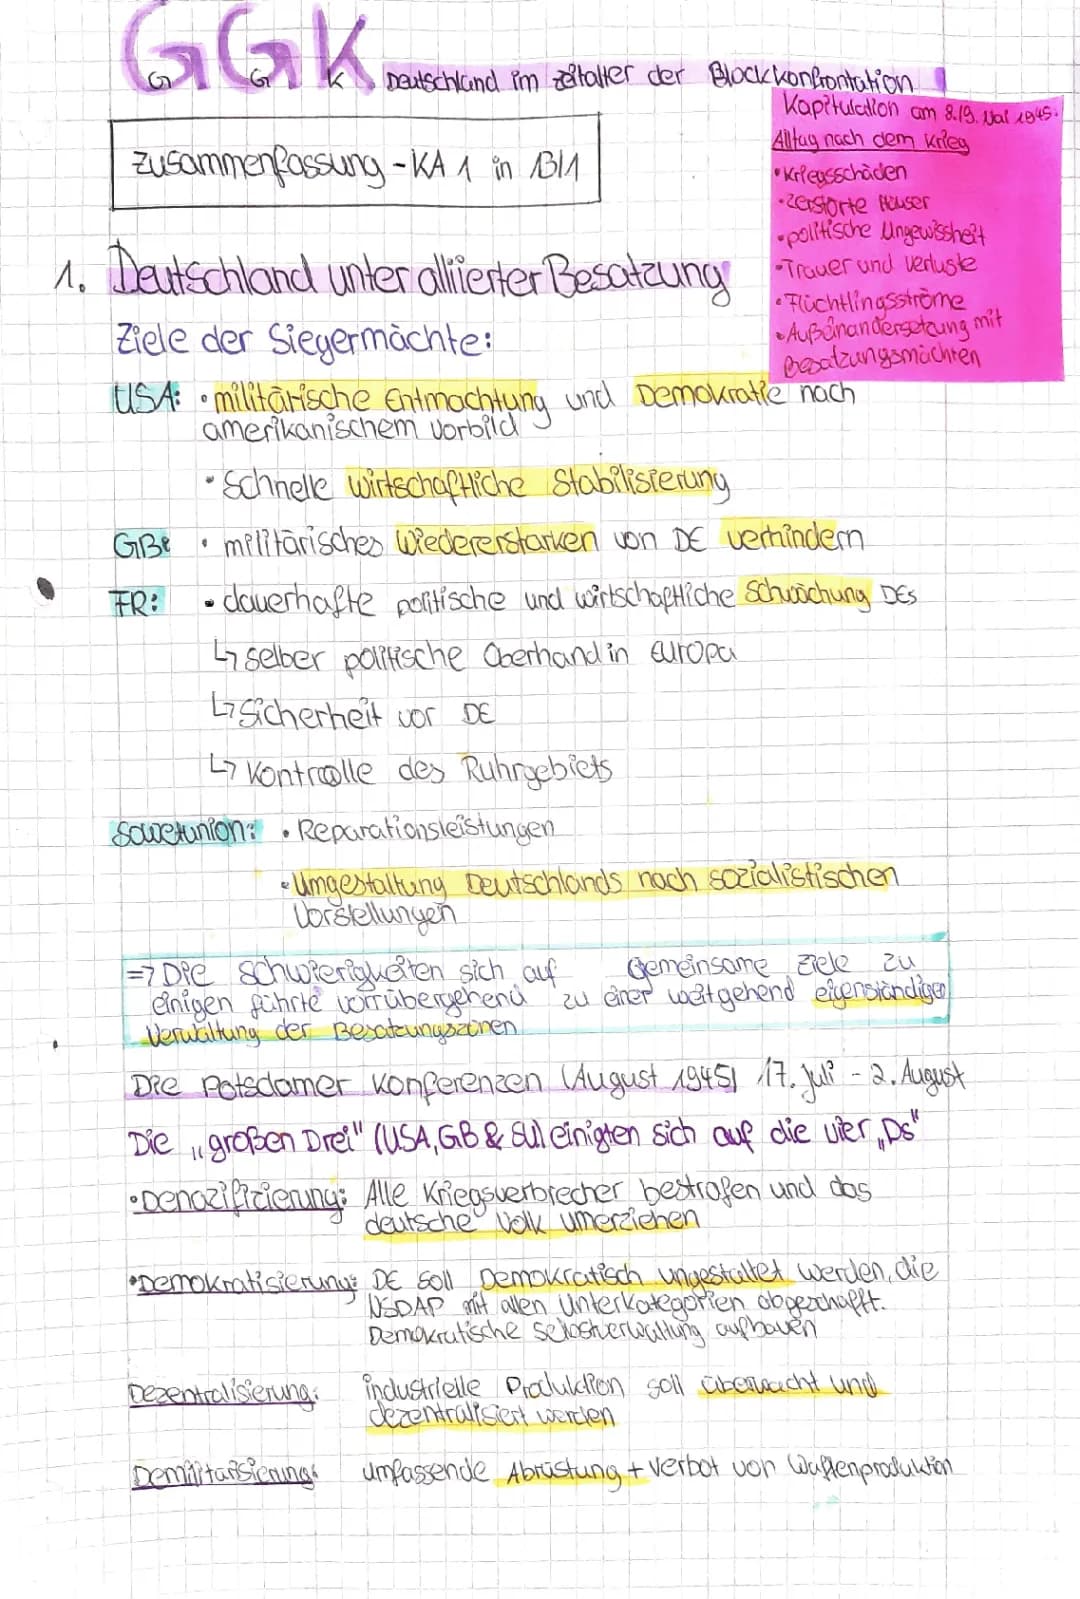 GGK
G G K Deutschland im Zeitalter der Blockkonfrontation
Zusammenfassung - KA 1 in 13/1
Kapitulation am 8./9. Mai 1945.
Alltag nach dem Krieg
• Kriegsschäden
• zerstörte Häuser
• politische Ungewissheit
• Trauer und Verluste
• Flüchtlingsströme
• Außeinandersetzung mit
Besatzungsmächten
1. Deutschland unter alliierter Besatzung
Ziele der Siegermächte:
USA: • militärische Entmachtung und Demokratie nach
amerikanischem Vorbild
• Schnelle wirtschaftliche Stabilisierung
GB: • militärisches Wiedererstarken von DE verhindern
FR: • dauerhafte politische und wirtschaftliche Schwächung DEs
↳ selber politische Oberhand in Europa
↳ Sicherheit vor DE
↳ Kontrolle des Ruhrgebiets
Sowetunion: • Reparationsleistungen
• Umgestaltung Deutschlands nach sozialistischen
Vorstellungen
=> Die Schwierigkeiten sich auf gemeinsame Ziele zu
einigen führte vorrübergehend zu einer weitgehend eigenständigen
Verwaltung der Besatzungszonen
Die Potsdamer Konferenzen (August 1945) 17. Juli - 2. August
Die „großen Drei" (USA, GB & SU) einigten sich auf die vier „Ds"
• Denazifizierung: Alle Kriegsverbrecher bestrafen und das
deutsche Volk umerziehen
• Demokratisierung: DE soll Demokratisch ungestaltet werden, die
NSDAP mit allen Unterkategorien abgeschafft.
Demokratische Selbstverwaltung aufbauen
Dezentralisierung: industrielle Produktion soll überwacht und
dezentralisiert werden
Demilitarisierung: umfassende Abrüstung + Verbot von Waffenproduktion